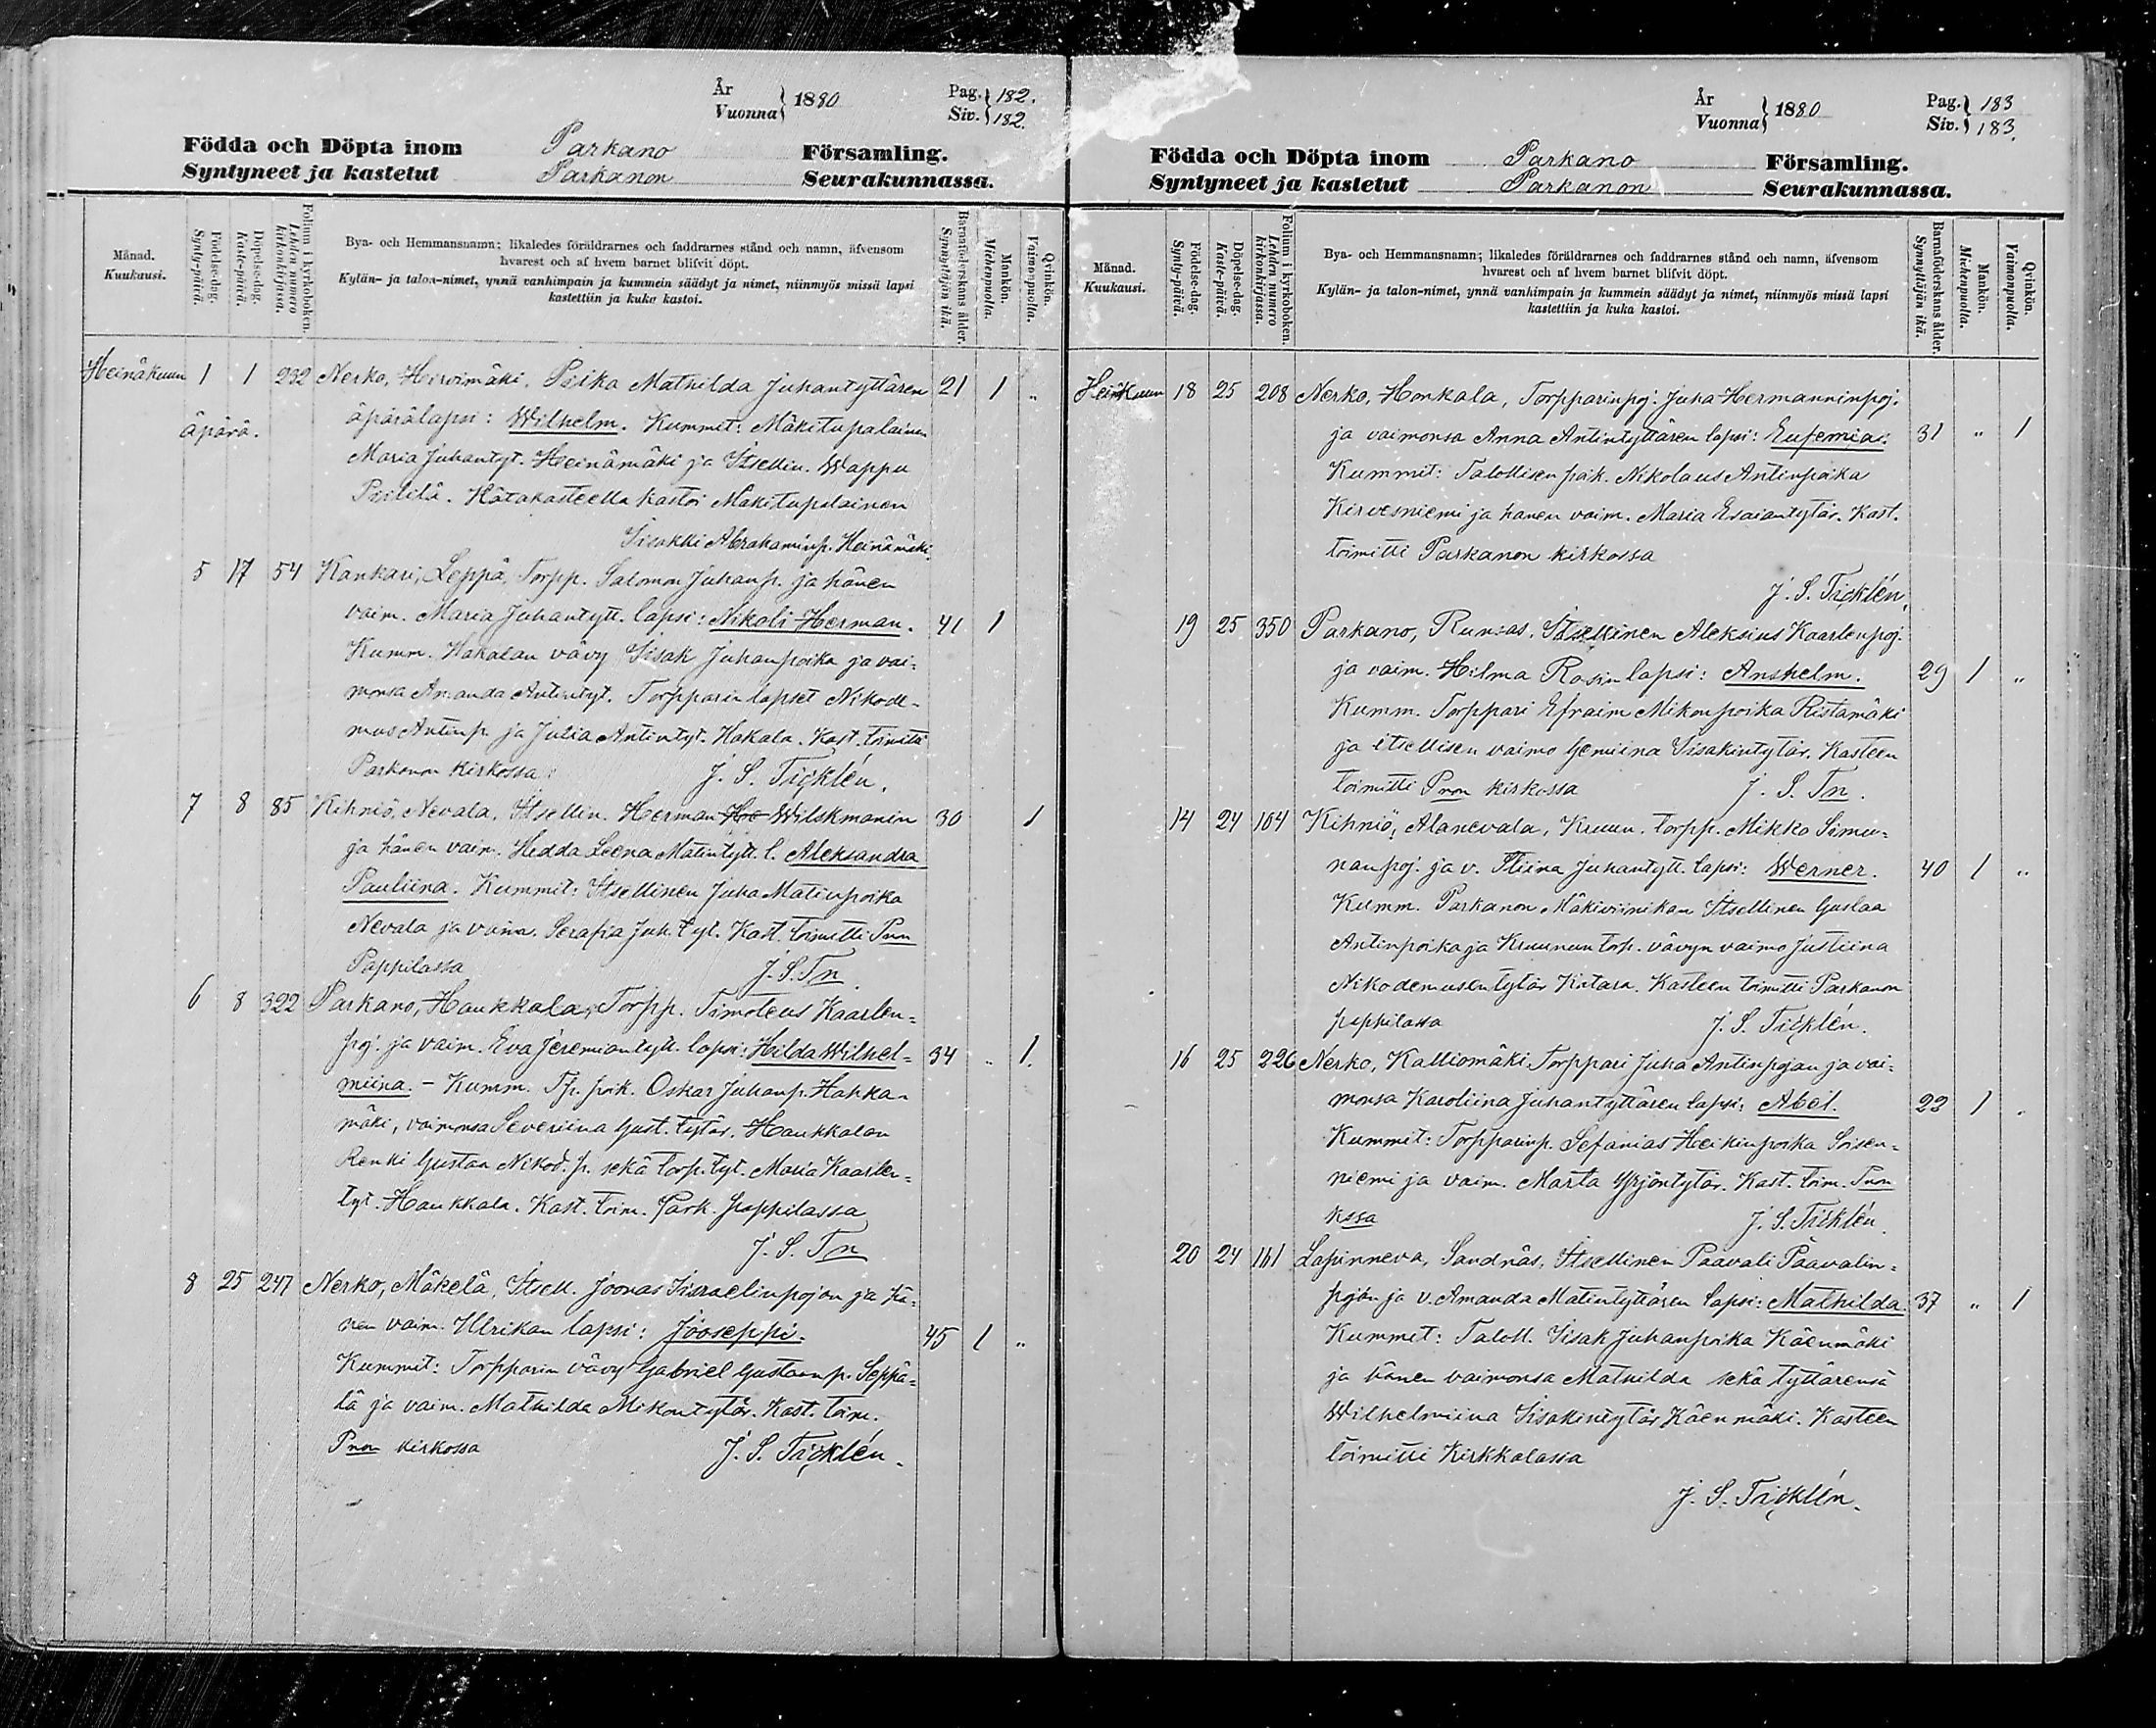 År
Vuonna } 1880
Pag. } 182.
Siv. } 182.
Födda och Döpta inom Parkano Församling.
Syntyneet ja kastetut Parkanon Seurakunnassa.
Månad.
Kuukausi.
Födelse-dag.
Synty-päivä.
Döpelse-dag.
Kaste-päivä.
Folium i kyrkoboken.
Lehden numero kirkonkirjassa.
Bya- och Hemmansnamn; likaledes föräldrarnes och faddrarnes stånd och namn, äfvensom
hvarest och af hvem barnet blifvit döpt.
Kylän- ja talon-nimet, ynnä vanhimpain ja kummein säädyt ja nimet, niinmyös missä lapsi
kastettiin ja kuka kastoi.
Barnaföderskans ålder.
Synnyttäjän ikä.
Mankön.
Miehenpuolia.
Qvinkön.
Vaimonpuolia.
Heinäkuun 1 1 232 Nerko, Hirvimäki, Mathilda Juhantyttären 21 1 "
äpärä. äpärälapsi: Wilhelm. Kummit: Mäkitupalainen
Maria Juhantyt. Heinämäki ja Itsellin. Wappu
Hätäkasteella kastoi Mäkitupalainen
Iisakki Abrahaminp. Heinämäki.
5 17 54 Kankari, Leppä, Torpp. Salomon Juhanp. ja hänen
vaim. Maria Juhantytt. lapsi: Nikolai Herman. 41 1
Kumm. Hakalan vävy Iisak Juhanpoika ja vai=
monsa Amanda Antintyt. Torpparin lapset Nikode-
mus Antinp. ja Julia Antintyt. Hakala. Kast. toimitti
Parkanon kirkossa: J. S. Ticklén.
7 8 85 Kihniö, Nevala, Itsellin. Herman Wilskmanin 30 1
ja hänen vaim. Hedda Leena Matintytt. l. Aleksandra
Pauliina. Kummit: Itsellinen Juha Matinpoika
Nevala ja vaim. Serafia Juh. tyt. Kast. toimitti Pnon
Pappilassa J. S. Tn.
6 8 322 Parkano, Haukkala, Torpp. Timoteus Kaarlen=
poj. ja vaim. Eva Jeremiantytt. lapsi: Hilda Wilhel= 34 " 1.
miina. - Kumm. Tp. poik. Oskar Juhanp. Hahka-
mäki, vaimonsa Severiina Gust. tytär, Haukkalan
Renki Gustaa Nikod. p. sekä torp. tyt. Maria Kaarlen=
tyt. Haukkala. Kast. toim. Park. pappilassa
J. S. Tn
8 25 247 Nerko, Mäkelä, Itsell. Joonas Iisraelinpojan ja hä=
nen vaim. Ulrikan lapsi: Jooseppi. 45 1 "
Kummit: Torpparin vävy Gabriel Gustaanp. Seppä=
lä ja vaim. Mathilda Mikontytär. Kast. toim.
Pnon kirkossa J. S. Ticklén.
År
Vuonna } 1880
Pag. } 183
Siv. } 183.
Födda och Döpta inom Parkano Församling.
Syntyneet ja kastetut Parkanon Seurakunnassa.
Månad.
Kuukausi.
Födelse-dag.
Synty-päivä.
Döpelse-dag.
Kaste-päivä.
Folium i kyrkoboken.
Lehden numero kirkonkirjassa.
Bya- och Hemmansnamn; likaledes föräldrarnes och faddrarnes stånd och namn, äfvensom
hvarest och af hvem barnet blifvit döpt.
Kylän- ja talon-nimet, ynnä vanhimpain ja kummein säädyt ja nimet, niinmyös missä lapsi
kastettiin ja kuka kastoi.
Barnaföderskans ålder.
Synnyttäjän ikä.
Mankön.
Miehenpuolta.
Qvinkön.
Vaimonpuolta.
Heinäkuun 18 25 208 Nerko, Honkala, Torpparinpoj. Juha Hermanninpoj.
ja vaimonsa Anna Antintyttären lapsi: Eufemia. 31 " 1
Kummit: Talollisen poik. Nikolaus Antinpoika
Kirvesniemi ja hänen vaim. Maria Esaiantytär. Kast.
toimitti Parkanon kirkossa
J. S. Ticklén.
19 25 350 Parkano, Itsellinen Aleksius Kaarlenpoj.
ja vaim. Hilma Rosin lapsi: Anshelm. 29 1 "
Kumm. Torppari Efraim Mikonpoika Ristamäki
ja itsellisen vaimo Iisakintytär. Kasteen
toimitti Pnon kirkossa J. S. Tn.
14 24 104 Kihniö, Alanevala, Kruun. torpp. Mikko Simu=
nanpoj. ja v. Juhantytt. lapsi: Werner. 40 1 "
Kumm. Parkanon Itsellinen Gustaa
Antinpoika ja Kruunun torp. vävyn vaimo Justiina
Nikodemusentytär Katara. Kasteen toimitti Parkanon
pappilassa J. S. Ticklén.
16 25 226 Nerko, Kalliomäki, Torppari Juha Antinpojan ja vai=
monsa Karoliina Juhantyttären lapsi: Abel. 22 1 .
Kummit: Torpparinp. Sefanias Heikinpoika Soisen=
niemi ja vaim. Marta Yrjöntytär. Kast. toim. Pnon
kssa J. S. Ticklén.
20 24 161 Lapinneva, Sandnäs, Itsellinen Paavali Paavalin=
pojan ja v. Amanda Matintyttären lapsi: Mathilda. 37 " 1
Kummit: Taloll. Iisak Juhanpoika Käenmäki
ja hänen vaimonsa Mathilda sekä tyttärensä
Wilhelmiina Iisakintytär Käenmäki. Kasteen
toimitti Kirkkalassa
J. S. Ticklén.